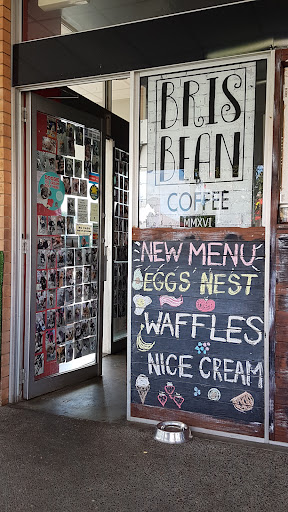 BRIS
BEAN
COFFEE
MMXVI
NEW MENU
EGGS NEST
WAFFLES
NICE CREAM